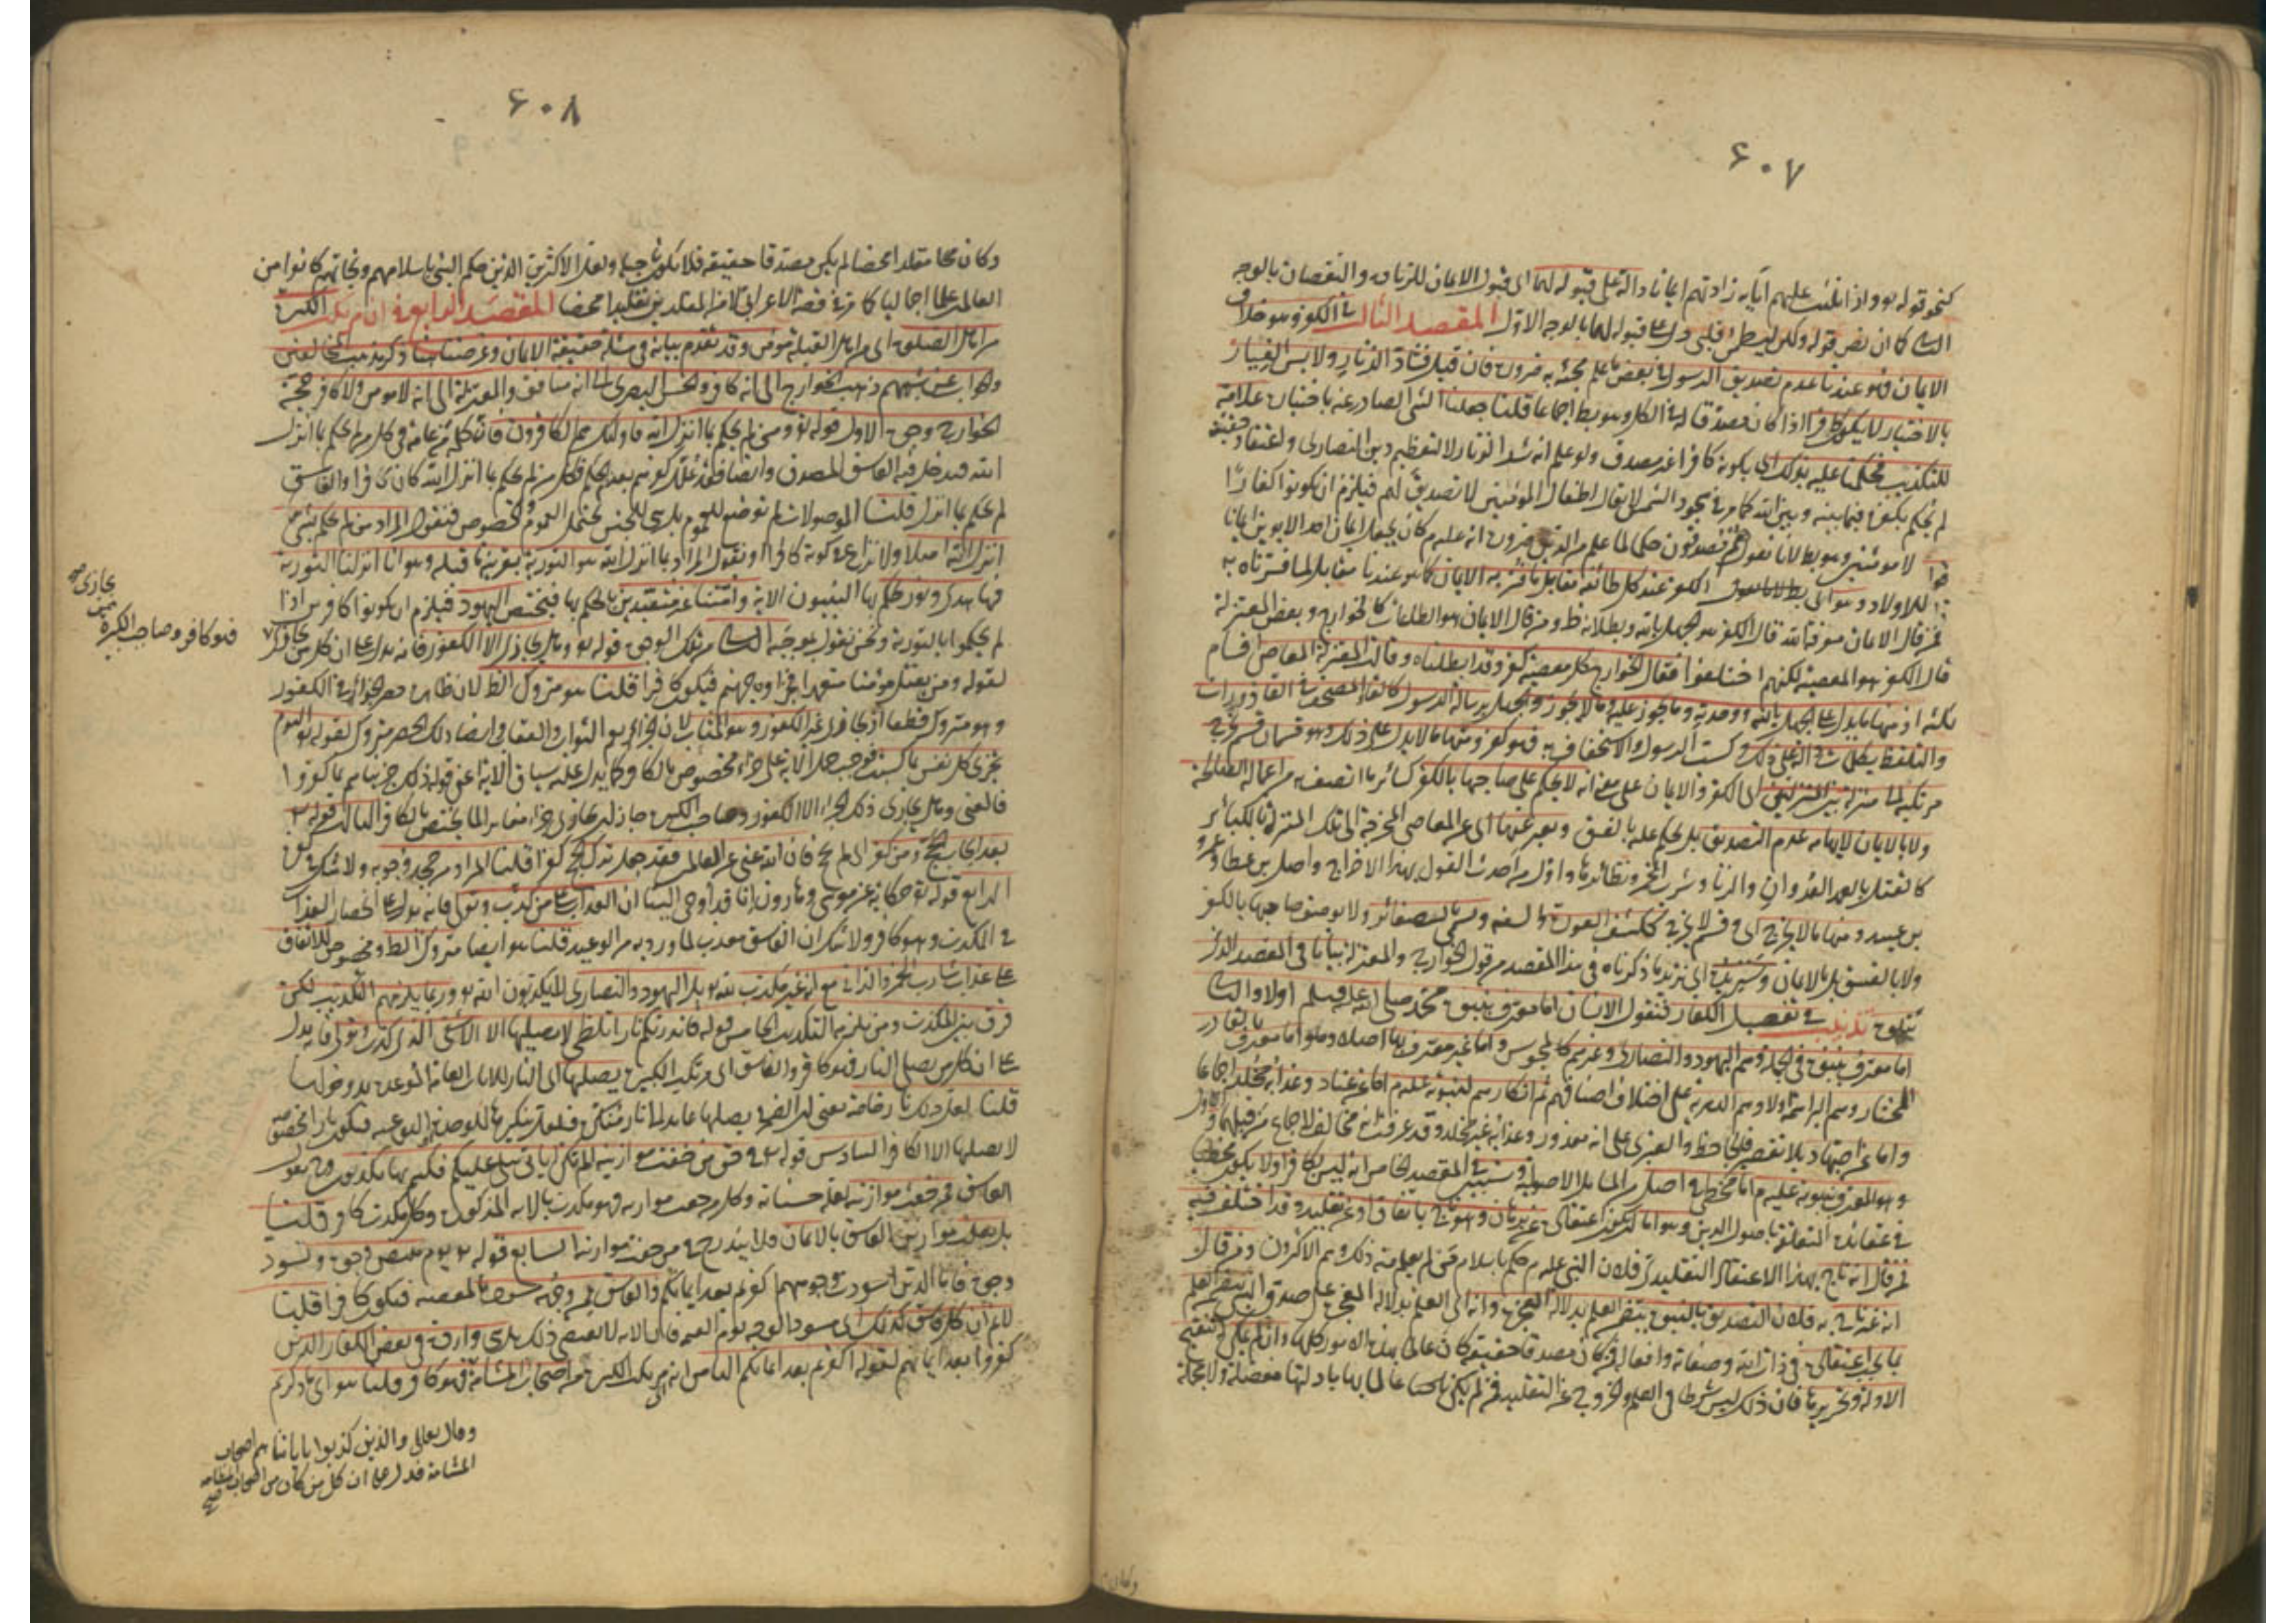 ۶۰۷
كنحو قوله تعالى واذا تليت عليهم آياته زادتهم ايمانا دالة على قبوله لهما اى قبول الايمان للزيادة والنقصان بالوجه
الثانى كما ان نص قوله ولكن ليطمئن قلبى دل على قبوله لهما بالوجه الاول المقصد الثالث فى الكفر وهو خلاف
الايمان فهو عندنا عدم تصديق الرسول فى بعض ما علم مجيئه به ضرورة فان قيل فشاد الزنار ولابس الغيار
بالاختيار لا يكون كافرا اذا كان مصدقا له فى الكل وهو بط اجماعا قلنا جعلنا الشئ الصادر عنه باختياره علامة
للتكذيب فحكمنا عليه بذلك اى بكونه كافرا غير مصدق ولو علم انه شد الزنار لا لتعظيم دين النصارى واعتقاد حقيته
لم نحكم بكفره فيما بينه وبين الله كما مر فى سجود الشمس لا يقال اطفال المؤمنين لا تصديق لهم فيلزم ان يكونوا كفارا
لا مؤمنين وهو بط لانا نقول هم مصدقون حكما لما علم من الدين ضرورة انه عليه م كان يجعل ايمان احد الابوين ايمانا
للاولاد الكفر عند كل طائفة مقابل ما فسر به الايمان كما هو عندنا مقابل لما فسرناه به
فمن قال الايمان معرفة الله قال الكفر هو الجهل بالله وبطلانه ظ ومن قال الايمان هو الطاعات كالخوارج وبعض المعتزلة
قال الكفر هو المعصية لكنهم اختلفوا فقال الخوارج كل معصية كفر وقد ابطلناه وقالت المعتزلة المعاصى اقسام
ثلثة اذ منها ما يدل على الجهل بالله ووحدته وما يجوز عليه وما لا يجوز والجهل برسالة الرسول كالقاء المصحف فى القاذورات
والتلفظ بكلمات دالة على ذلك وكسب الرسول والاستخفاف به فهو كفر ومنها ما لا يدل على ذلك وهو قسمان قسم يخرج
مرتكبه الى منزلة بين المنزلتين اى الكفر والايمان على معنى انه لا يحكم على صاحبها بالكفر كسائر ما اتصف به من اعماله الصالحة
ولا بالايمان لايهامه عدم التصديق بل يحكم عليه بالفسق ويعبر عنها اى عن المعاصى المخرجة الى تلك المنزلة بالكبائر
كالقتل العمد العدوان والزنا وشرب الخمر ونظائرها واول من احدث القول بهذا الاخراج واصل بن عطاء وعمرو
بن عبيد ومنها ما لا يخرج اى قسم لا يخرج ككشف العورة والسفه ويسمى بالصغائر ولا يوصف صاحبها بالكفر
ولا بالفسق بل بالايمان وسنزيده اى نزيد ما ذكرناه فى هذا المقصد من قول الخوارج والمعتزلة بيانا فى المقصد الذى
يتلوه تذنيب فى تفصيل الكفار فنقول الانسان اما معترف بنبوة محمد صلى الله عليه وسلم اولا والثانى
اما معترف بنبوة فى الجملة وهم اليهود والنصارى وغيرهم كالمجوس واما غير معترف بها اصلا وهو اما معترف بالقادر
المختار وهم البراهمة اولا وهم الدهرية على اختلاف اصنافهم ثم انكارهم لنبوته عليه م اما عن عناد وعذابه مخلد اجماعا
واما عن اجتهاد بلا تقصير فالجاحظ والعنبرى على انه معذور وعذابه غير مخلد وقد عرفت انه مخالف لاجماع من قبلهما والاول
وهو المعترف بنبوته عليه م اما مخطئ فى اصل من المسائل الاصولية وسنبين فى المقصد الخامس انه ليس بكافر اولا يكون مخطئا
فى عقائده المتعلقة باصول الدين وهو اما ان يكون اعتقاده عن برهان وهو ناج باتفاق او عن تقليد وقد اختلف فيه
فمن قال انه ناج بهذا الاعتقاد التقليدى فلان النبى عليه م حكم باسلام من لم يعلم منه ذلك وهم الاكثرون ومن قال
انه غير ناج به فلان التصديق بالنبوة يتضمن العلم بدلالة المعجزة وانه اى العلم بدلالة المعجزة على صدق النبى يتضمن العلم
بما يجب اعتقاده فى ذات الله وصفاته وافعاله فمن كان مصدقا حقيقة كان عالما بهذه الامور كلها وان لم يمكن له تنقيح
الادلة وتحريرها فان ذلك ليس شرطا فى العلم والخروج عن التقليد فمن لم يكن عالما بها بادلتها مفصلة ولا مجملة
وكان
۶۰۸
وكان مقلدا محضا لم يكن مصدقا حقيقة فلا يكون ناجيا ولعل الاكثرين الذين حكم النبى باسلامهم ونجاتهم كانوا من
العالمين علما اجماليا كما مر فى قصة الاعرابى لا من المقلدين تقليدا محضا المقصد الرابع فى ان مرتكب الكبيرة
من اهل الصلوة اى من اهل القبلة مؤمن وقد تقدم بيانه فى مسئلة حقيقة الايمان وغرضنا هنا ذكر مذهب المخالفين
والجواب عن شبههم ذهب الخوارج الى انه كافر والحسن البصرى الى انه منافق والمعتزلة الى انه لا مؤمن ولا كافر حجة
الخوارج وجوه الاول قوله تع ومن لم يحكم بما انزل الله فاولئك هم الكافرون فان كلمة من عامة فى كل من لم يحكم بما انزل
الله فيدخل فيه الفاسق المصدق وايضا فقد علل كفرهم بعدم الحكم فكل من لم يحكم بما انزل الله كان كافرا والفاسق
لم يحكم بما انزل قلنا الموصولات لم توضع للعموم بل هى للجنس تحتمل العموم والخصوص فنقول المراد من لم يحكم بشئ مما
انزل الله اصلا ولا نزاع فى كونه كافرا او نقول المراد بما انزل الله هو التورية بقرينة ما قبله وهو انا انزلنا التورية
فيها هدى ونور يحكم بها النبيون الاية وامتنا غير متعبدين بالحكم بها فيختص اليهود فيلزم ان يكونوا كافرين اذا
لم يحكموا بالتورية ونحن نقول بموجبه الثانى من تلك الوجوه قوله تع وهل نجازى الا الكفور فانه يدل على ان كل من يجازى
بجازى صح
فهو كافر وصاحب الكبيرة ممن
لقوله ومن يقتل مؤمنا متعمدا فجزاؤه جهنم فيكون كافرا قلنا هو متروك الظ لان ظاهره حصر الجزاء فى الكفور
وهو متروك قطعا اذ يجازى غير الكفور وهو المثاب لان الجزاء يعم الثواب والعقاب ايضا ذلك الحصر متروك لقوله تع اليوم
تجزى كل نفس بما كسبت فوجب حمل الاية على جزاء مخصوص بالكافر كما يدل عليه سياق الاية اعنى قوله ذلك جزيناهم بما كفروا
فالمعنى وهل نجازى ذلك الجزاء الا الكفور وصاحب الكبيرة جاز ان يجازى جزاء مغايرا لما يختص بالكافر الثالث قوله تع
بعد ايجاب الحج ومن كفر اى لم يحج فان الله غنى عن العالمين فقد جعل ترك الحج كفرا قلنا المراد من جحد وجوبه ولا شك فى كفره
الرابع قوله تع حكاية عن موسى وهارون انا قد اوحى الينا ان العذاب على من كذب وتولى فانه يدل على انحصار العذاب
فى المكذب وهو كافر ولا شك ان الفاسق معذب لما ورد به من الوعيد قلنا هو ايضا متروك الظ ومخصوص للاتفاق
على عذاب شارب الخمر والزانى مع انه غير مكذب لله تع بل اليهود والنصارى لا يكذبون الله تع وربما يلزمهم التكذيب لكن
فرق بين المكذب ومن يلزمه التكذيب الخامس قوله فانذرتكم نارا تلظى لا يصليها الا الاشقى الذى كذب وتولى فانه يدل
على ان كل من يصلى النار فهو كافر والفاسق اى مرتكب الكبيرة يصليها اى النار للايات العامة الموعدة بدخولها
قلنا لعل ذلك نار خاصة يعنى ان الضمير فى يصليها عائد الى نار منكرة فلعل تنكيرها للوحدة النوعية فيكون نارا مخصوصة
لا يصليها الا الكافر السادس قوله تع فى حق من خفت موازينه الم تكن آياتى تتلى عليكم فكنتم بها تكذبون ونقول
الفاسق ممن خفت موازينه لقلة حسناته وكل من خفت موازينه فهو مكذب بالاية المذكورة وكل مكذب كافر قلنا
بل يثقل موازين الفاسق بالايمان فلا يندرج فى من خفت موازينه السابع قوله تع يوم تبيض وجوه وتسود
وجوه فاما الذين اسودت وجوههم اكفرتم بعد ايمانكم والفاسق ممن وجهه مسود بالمعصية فيكون كافرا قلنا
لا نم ان كل فاسق كذلك اى مسود الوجه يوم القيمة فان الاية لا تقتضى ذلك بل هى واردة فى بعض الكفار الذين
كفروا بعد ايمانهم لقوله اكفرتم بعد ايمانكم الثامن ان مرتكب الكبيرة من اصحاب المشأمة فهو كافر قلنا
وقال تعالى والذين كفروا باياتنا هم اصحاب
المشأمة فدل على ان كل من كان من اصحاب المشأمة